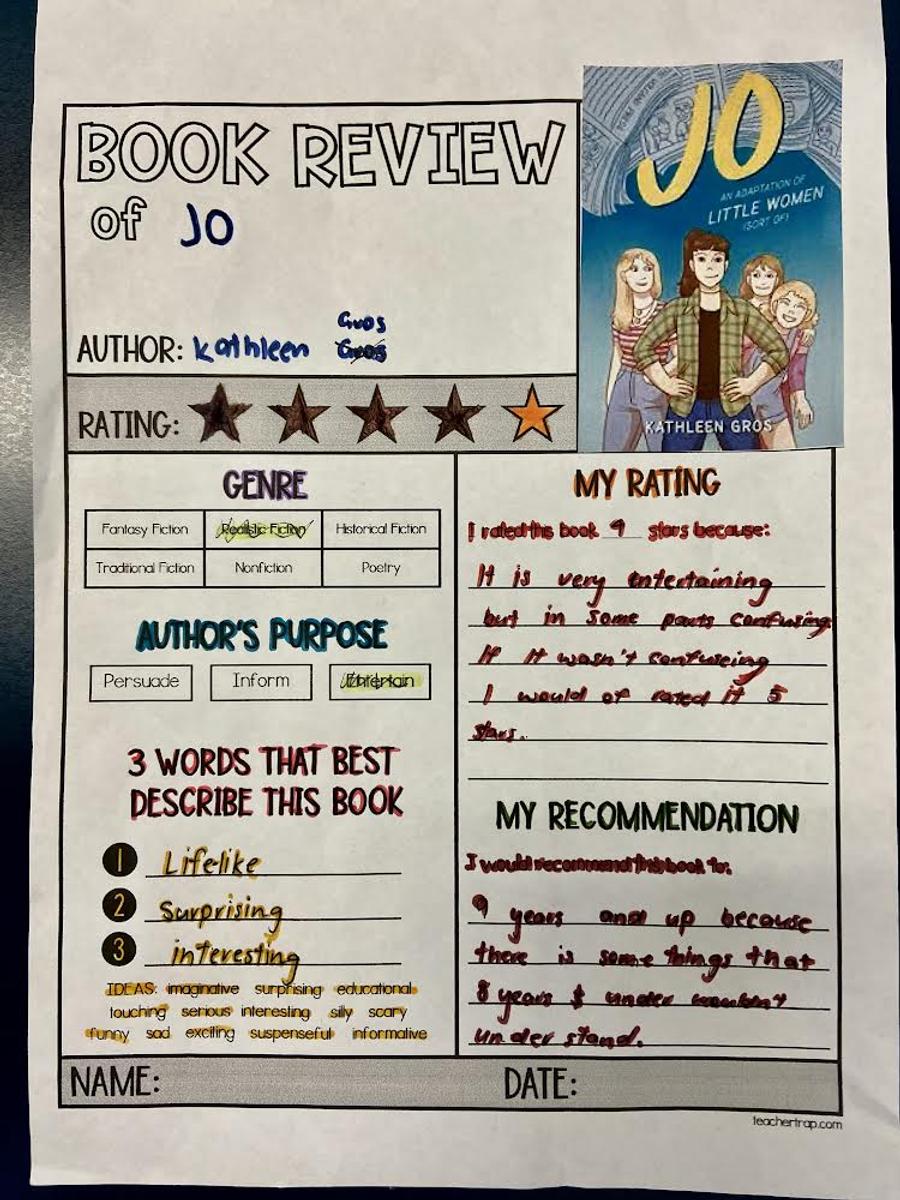 BOOK REVIEW
of JO
AUTHOR: Kathleen Gros
Gros
RATING:
JO
AN ADAPTATION OF
LITTLE WOMEN
(SORT OF)
KATHLEEN GROS
GENRE
Fantasy Fiction Realistic Fiction Historical Fiction
Traditional Fiction Nonfiction Poetry
AUTHOR'S PURPOSE
Persuade Inform Entertain
3 WORDS THAT BEST
DESCRIBE THIS BOOK
1 Lifelike
2 Surprising
3 interesting
IDEAS: imaginative surprising educational
touching serious interesting silly scary
funny sad exciting suspenseful informative
MY RATING
I rated this book 4 stars because:
It is very entertaining
but in some parts confusing.
If it wasn't confuseing
I would of rated it 5
stars.
MY RECOMMENDATION
I would recommend this book to:
9 years and up because
there is some things that
8 years & under wouldn't
under stand.
NAME:
DATE:
teachertrap.com